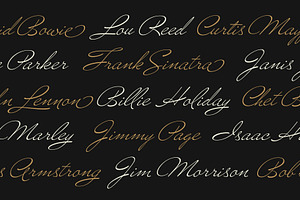 id Bowie Lou Reed Curtis May
e Parker Frank Sinatra Janis
hn Lennon Billie Holiday Chet B
Marley Jimmy Page Isaac H
s Armstrong Jim Morrison Bob